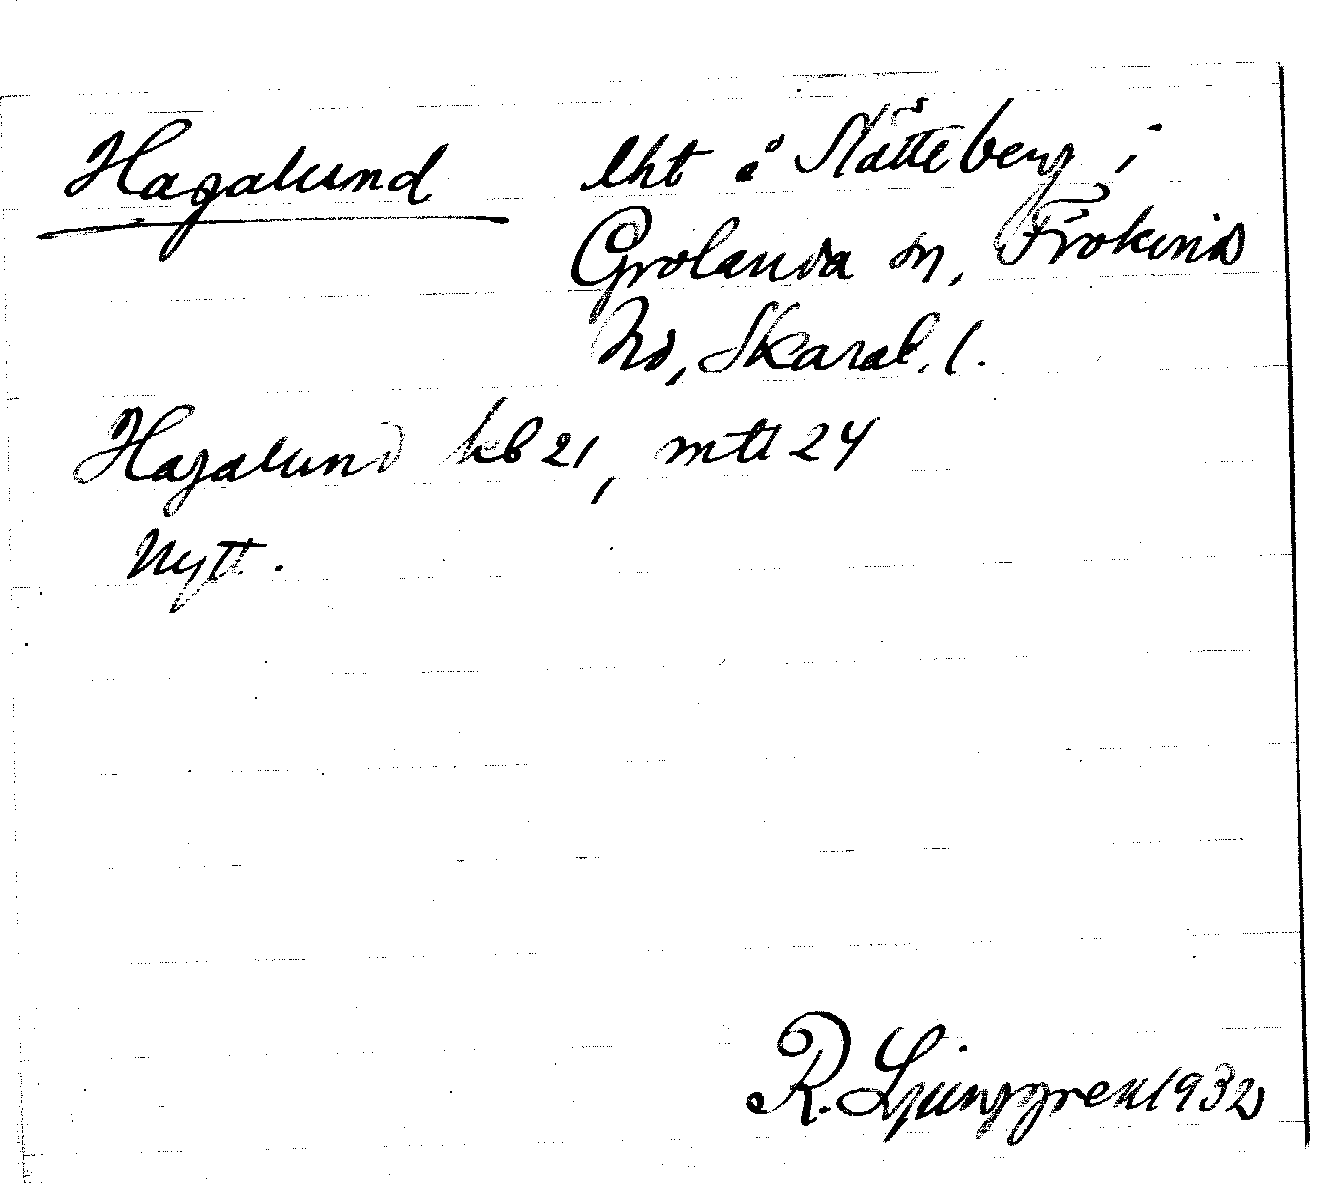 Hagalund lht å Slätteberg i
Grolanda sn, Frökinds
hd, Skarab. l.
Hagalund kb 21, mtl 24
Nytt.
R. Ljunggren 1932